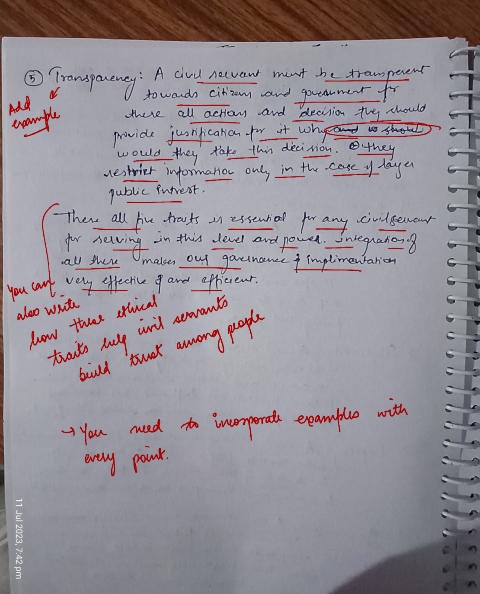 ⑤ Transparency: A civil servant must be transparent
towards citizens and government for
there all actions and decision they should
provide justification for it why and is should
would they take this decision. They
restrict information only in the case of larger
public intrest.
Add
example
There all five traits is essential for any civil servant
for serving in this level and power. integration of
all there makes our governance & implimentation
very effective & and efficient.
You can
also write
how these ethical
traits help civil servants
build trust among people
→ You need to incorporate examples with
every point.
11 Jul 2023, 7:42 pm